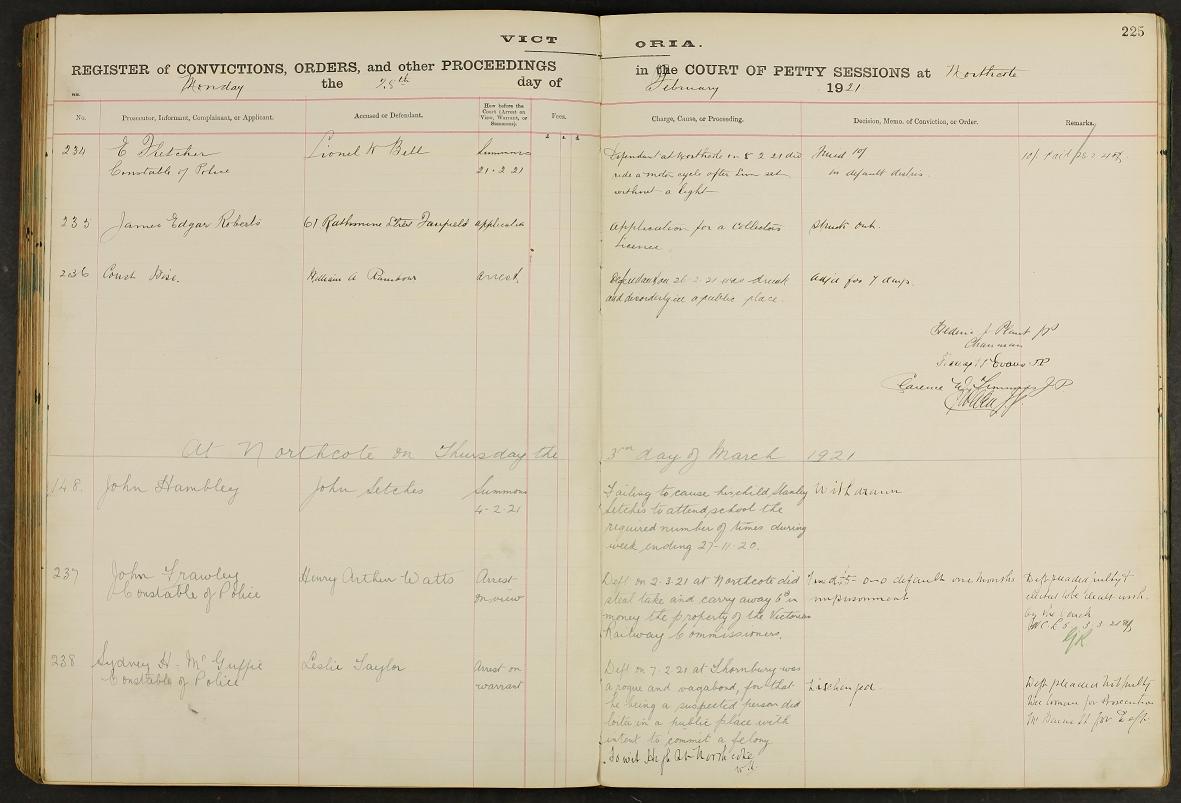 225
VICTORIA.
REGISTER of CONVICTIONS, ORDERS, and other PROCEEDINGS in the COURT OF PETTY SESSIONS at Northcote
Monday the 28th day of February 1921
No. Prosecutor, Informant, Complainant, or Applicant. Accused or Defendant. How before the Court (Arrest on View, Warrant, or Summons). Fees. Charge, Cause, or Proceeding. Decision, Memo. of Conviction, or Order. Remarks.
£ s d
234 E Fletcher Lionel W Bell Summons Defendant at Northcote on 8 2 21 did Fined 10/ 10/ Paid
Constable of Police 21.2.21 ride a motor cycle after Sun set in default distress
without a light
235 James Edgar Roberts 61 Rathmine Street Fairfield application application for a Collectors Struck out
Licence
236 Const Wise. William A arrest Defendant on 26.2.21 was drunk Adjd for 7 days.
and disorderly in a public place.
Plant JP
Chairman
Evans JP
Clarence W J.P
At Northcote on Thursday the 3rd day of March 1921
148. John Hambley John Setches Summons Failing to cause his child Stanley Withdrawn
4-2-21 Setches to attend school the
required number of times during
week ending 27-11-20.
237 John Frawley Henry Arthur Watts Arrest Deft on 2.3.21 at Northcote did Fined £5-0-0 default one months Deft pleaded guilty &
Constable of Police on view steal take and carry away 6d in imprisonment elected to be dealt with
money the property of the Victorian by the bench
Railway Commissioners. 3.3.21
GR
238 Sydney H. McGuffie Leslie Taylor Arrest on Deft on 7.2.21 at Thornbury was
Constable of Police warrant a rogue and vagabond, for that Discharged. Deft pleaded not guilty
he being a suspected person did for Prosecution
loiter in a public place with for Deft.
intent to commit a felony
To wit High St Northcote